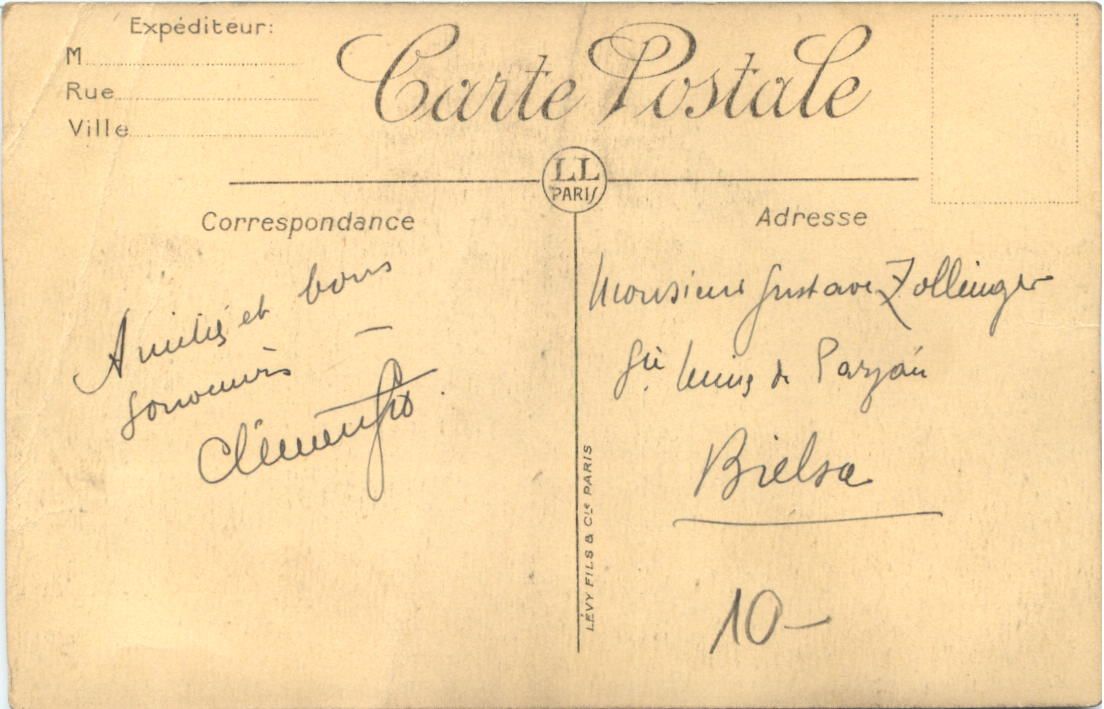 Expéditeur:
M
Rue
Ville
Carte Postale
LL
PARIS
Correspondance
Amitiés et bons
souvenirs
Adresse
Monsieur Gustave Zollinger
de Parzán
Bielsa
10-
LÉVY FILS & Cie PARIS